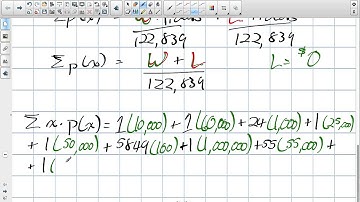 122,839
Σp(x) = W + L L = $0
122,839
Σ x · p(x) = 1(10,000) + 1(60,000) + 24(1,000) + 1(25,000)
+ 1(50,000) + 5849(100) + 1(1,000,000) + 55(55,000) +
+ 1(